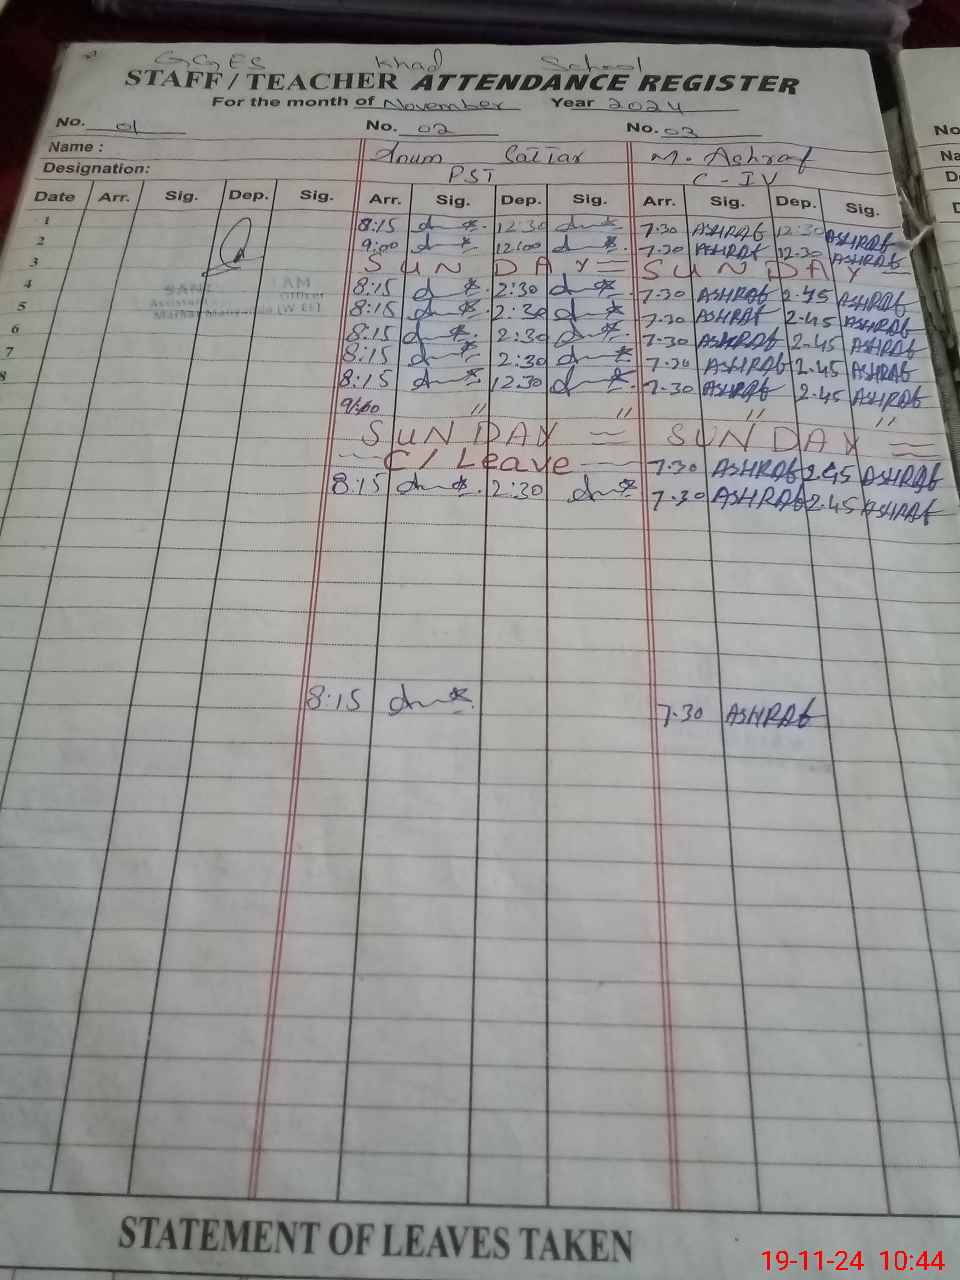 GGES Khad School
STAFF / TEACHER ATTENDANCE REGISTER
For the month of November Year 2024
No. 01 No. 02 No. 03
Name : Anum Sattar M. Ashraf
Designation: PST C-IV
Date Arr. Sig. Dep. Sig. Arr. Sig. Dep. Sig. Arr. Sig. Dep. Sig.
1 8:15 12:30 7.30 ASHRAf 12:30 ASHRAf
2 9:00 12:00 7.30 ASHRAf 12.30 ASHRAf
3 SUNDAY = SUNDAY =
4 8:15 2:30 7.30 ASHRAf 2.45 ASHRAf
5 8:15 2:30 7.30 ASHRAf 2.45 ASHRAf
6 8:15 2:30 7.30 ASHRAf 2.45 ASHRAf
7 8:15 2:30 7.30 ASHRAf 2.45 ASHRAf
8 8:15 12.30 7.30 ASHRAf 2.45 ASHRAf
" " " "
SUNDAY = SUNDAY =
C/Leave 7.30 ASHRAf 2.45 ASHRAf
8:15 2:30 7.30 ASHRAf 2.45 ASHRAf
8:15 7.30 ASHRAf
STATEMENT OF LEAVES TAKEN
19-11-24 10:44